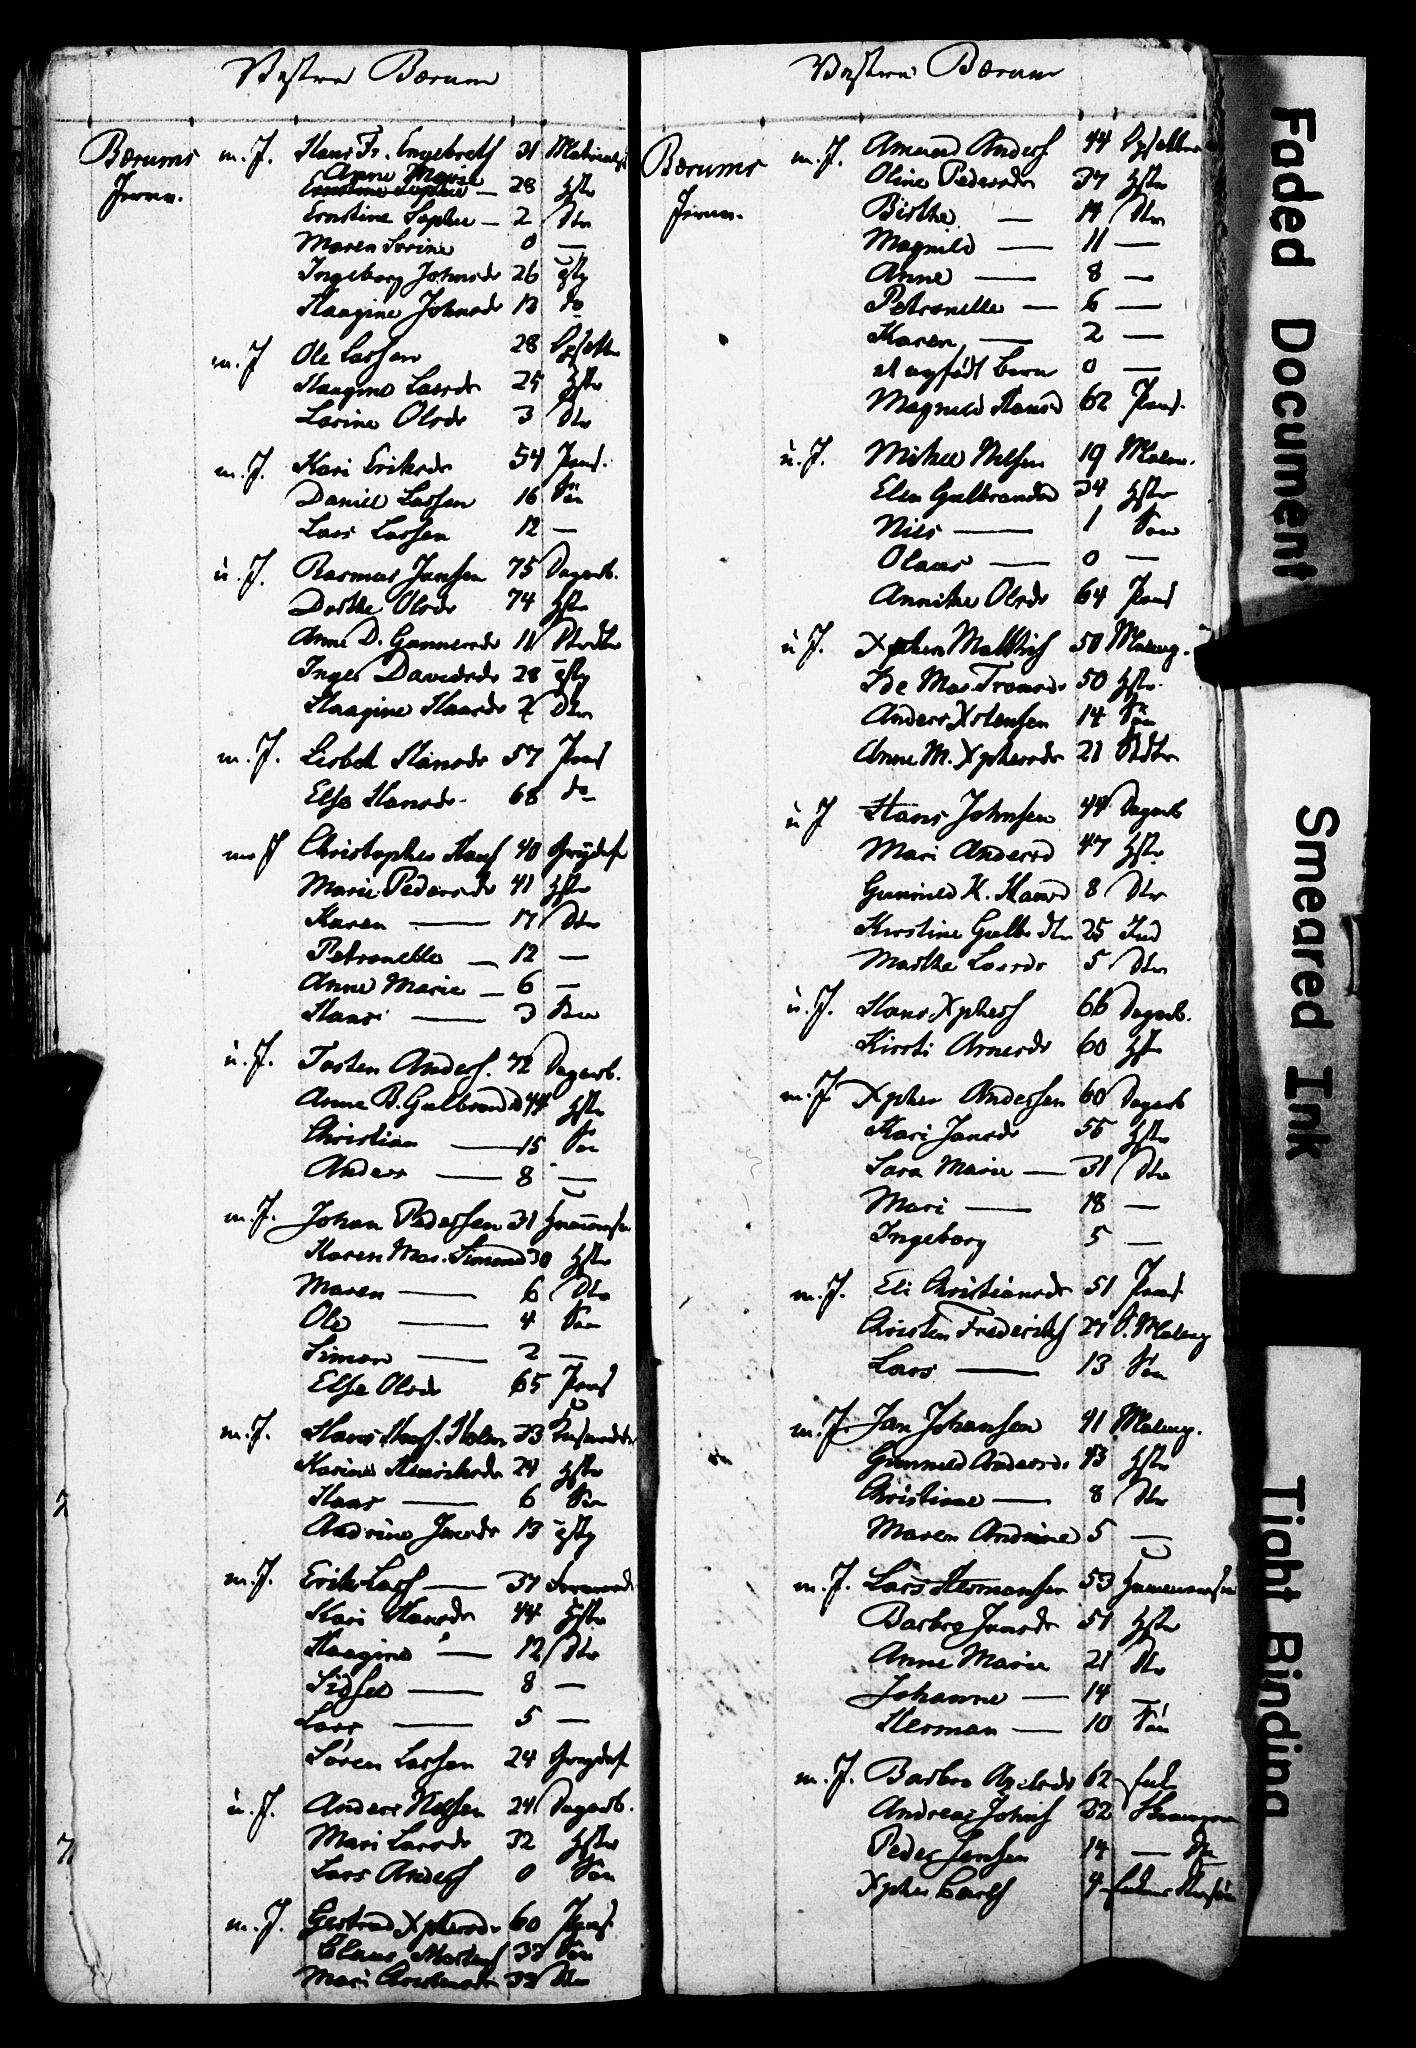 Vestre Bærum
Bærums m. J. Hans Fr. Engebrets 31
Jernv. Anne Marie
28 Hstr
Ernstine Sophie — 2 Dtr
Maren Sorine 0 —
Ingeborg Johnsdr 26 Tjsty
Haagine Johnsdr 13 do
m. J Ole Larsen 28 Opsetter
Haagine Larsdr 25 Hstr
Larine Olsdr 3 Dtr
m. J. Kari Eriksdr 54 Pens.
Daniel Larsen 16 Sön
Lars Larsen 12 —
u. J. Rasmus Jansen 75 Dagarb.
Dorthe Olsdr 74 Hstr
Anne D. Gunnersdr 11
Inger Davidsdr 28 Tjsty
Haagine Haansdr 2 Dtr
m. J. Lisbet Hansdr 57 Pens
Else Hansdr 68 do
m J Christopher Hans 40
Marie Pedersdr 41 Hstr
Karen — 17 Dtr
Petronelle — 12 —
Anne Marie — 6 —
Hans — 3 Sön
u. J. Tosten Anders. 42 Dagarb.
Anne B. Gulbrandsd 44 Hstr
Christian — 15 Sön
Anders — 8 —
m. J. Johan Pedersen 31
Karen Mar. Simonsd 30 Hstr
Maren — 6 Dtr
Ole — 4 Sön
Simon — 2 —
Else Olsdr 65 Pens
m. J. Hans Hans. Holm 33
Karine Henriksdr 24 Hstr
Hans — 6 Sön
Andrine Jansdr 13 Tjsty
m. J. Erik Lars — 37
Kari Hansdr 44 Hstr
Haagine — 12 Dtr
Sidsel — 8 —
Lars — 5 —
Sören Larsen 24
u. J. Anders Nilsen 24 Dagarb.
Mari Larsdr 32 Hstr
Lars Anders 0 Sön
m. J. Gertrud Xphersdr 60 Pens.
Claus Mortens 33 Sön
Mari Christensdr 32 Dtr
Vestre Bærum
Bærums m. J. Amund Anders 44 Opsetter
Jernv. Oline Pedersdr 37 Hstr
Birthe — 14 Dtr
Magnild — 11 —
Anne — 8 —
Petronelle — 6 —
Karen — 2 —
et nyfödt Barn 0 —
Magnild Hansd 62 Pens.
u. J. Mikel Nilsen 19
Elen Gulbrandsd 34 Hstr
Nils — 1 Sön
Olaus — 0 —
Annike Olsdr 64 Pens
u. J. 50 Malmg.
Ide Mar. Tronsdr 50 Hstr.
Anders Xstensen 14 Sön
Anne M. Xphersdr 21
u. J Hans Johnsen 44 Dagarb
Mari Andersd 47 Hstr
Gunnild K. Hansd 8 Dtr
Kirstine Gulb. dtr 25 Ind
Marthe Larsdr 5 Dtr
u. J. Hans Xphers 66 Dagarb.
Kirsti Arnesdr 60 Hstr
m. J. Xpher Andersen 60 Dagarb
Kari Jansdr 55 Hstr
Sara Marie — 31 Dtr
Mari — 18 —
Ingeborg 5 —
m. J. Eli Christiansdr 51 Pens.
Christen Frederiks 27 S. Malmg
Lars — 13 Sön
m. J. Jan Johansen 41 Malmg.
Gunnild Andersdr 43 Hstr
Christiane — 8 Dtr
Maren Andrine 5 —
m. J. Lars Hermansen 53
Barbro Jansdr 51 Hstr
Anne Marie 21 Dtr
Johanne — 14 —
Herman — 10 Sön
m. J. Barbro Axelsdr 62
Andreas Johns 32
Peder Jensen 14 — do
Xpher Carls 4
Faded Document
Smeared Ink
Tight Binding